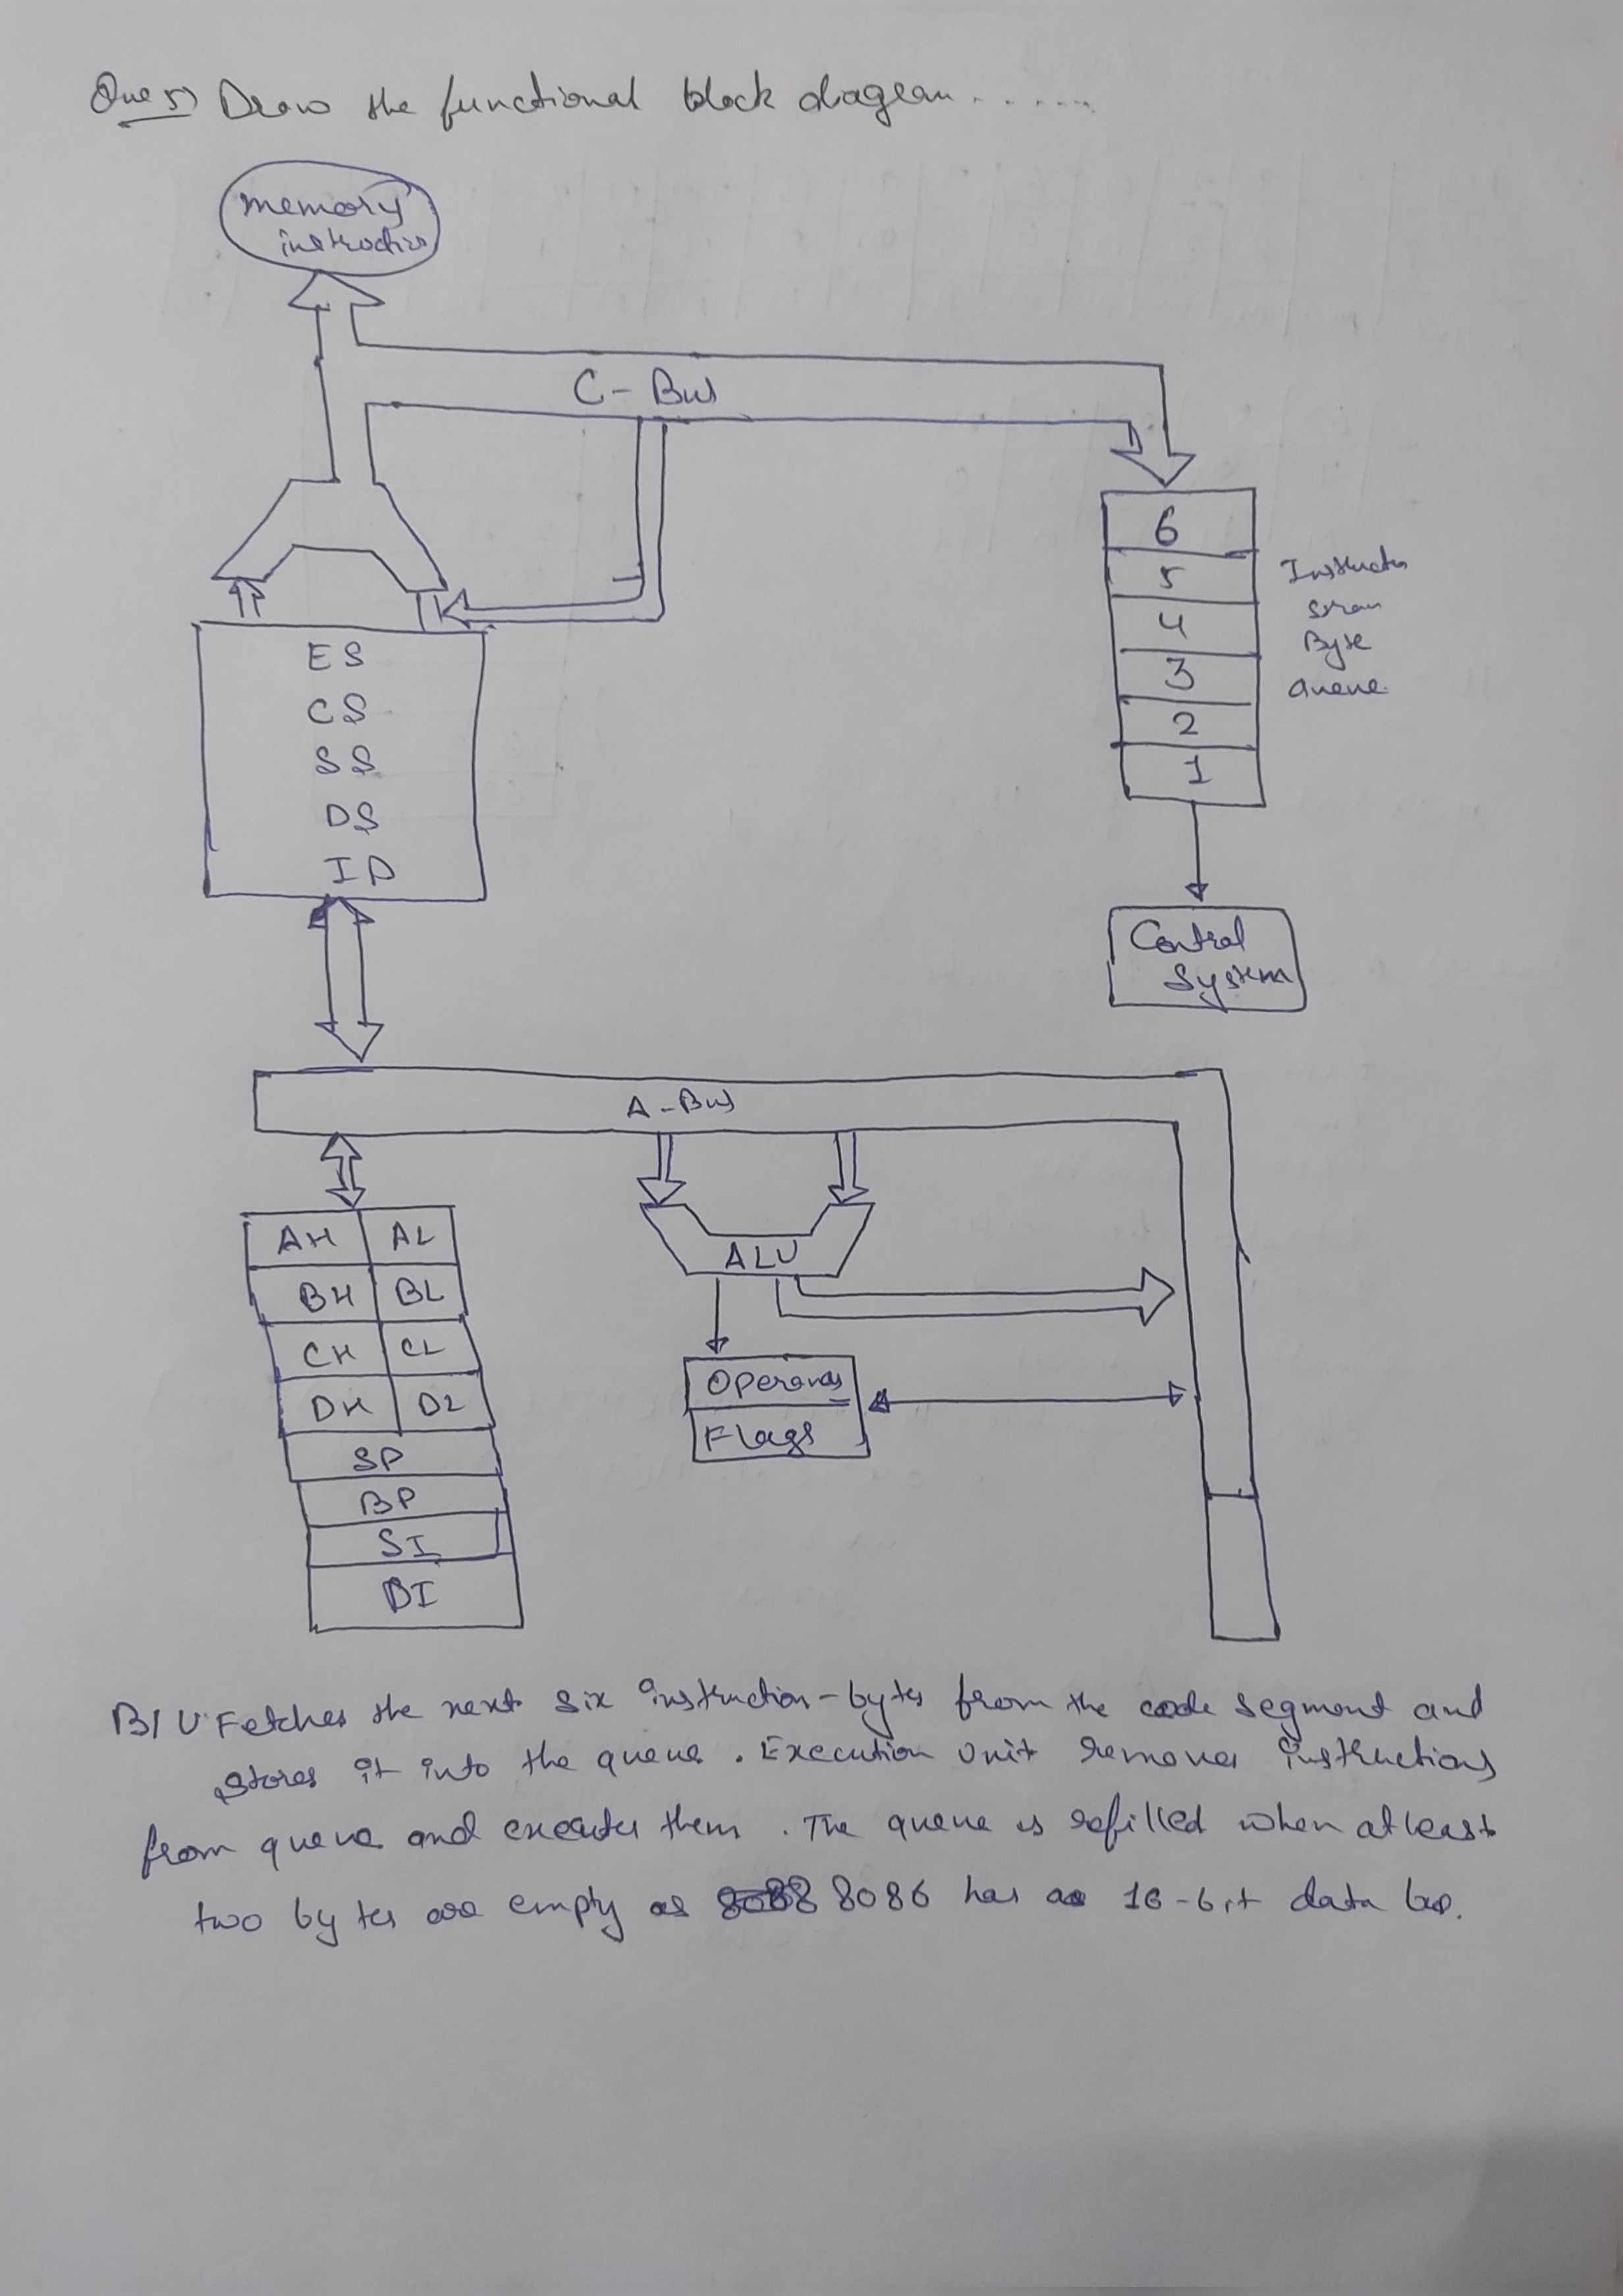 Que 5) Draw the functional block diagram......
memory
instruction
C-Bus
6
5
4
3
2
1
Instructio
Stream
Byte
Queue.
ES
CS
SS
DS
IP
Control
System
A-Bus
AH AL
BH BL
CH CL
DH DL
SP
BP
SI
DI
ALU
Operands
Flags
BIU Fetches the next six instruction-bytes from the code segment and
stores it into the queue. Execution Unit removes instructions
from queue and executes them. The queue is refilled when atleast
two bytes are empty as 8086 has a 16-bit data bus.